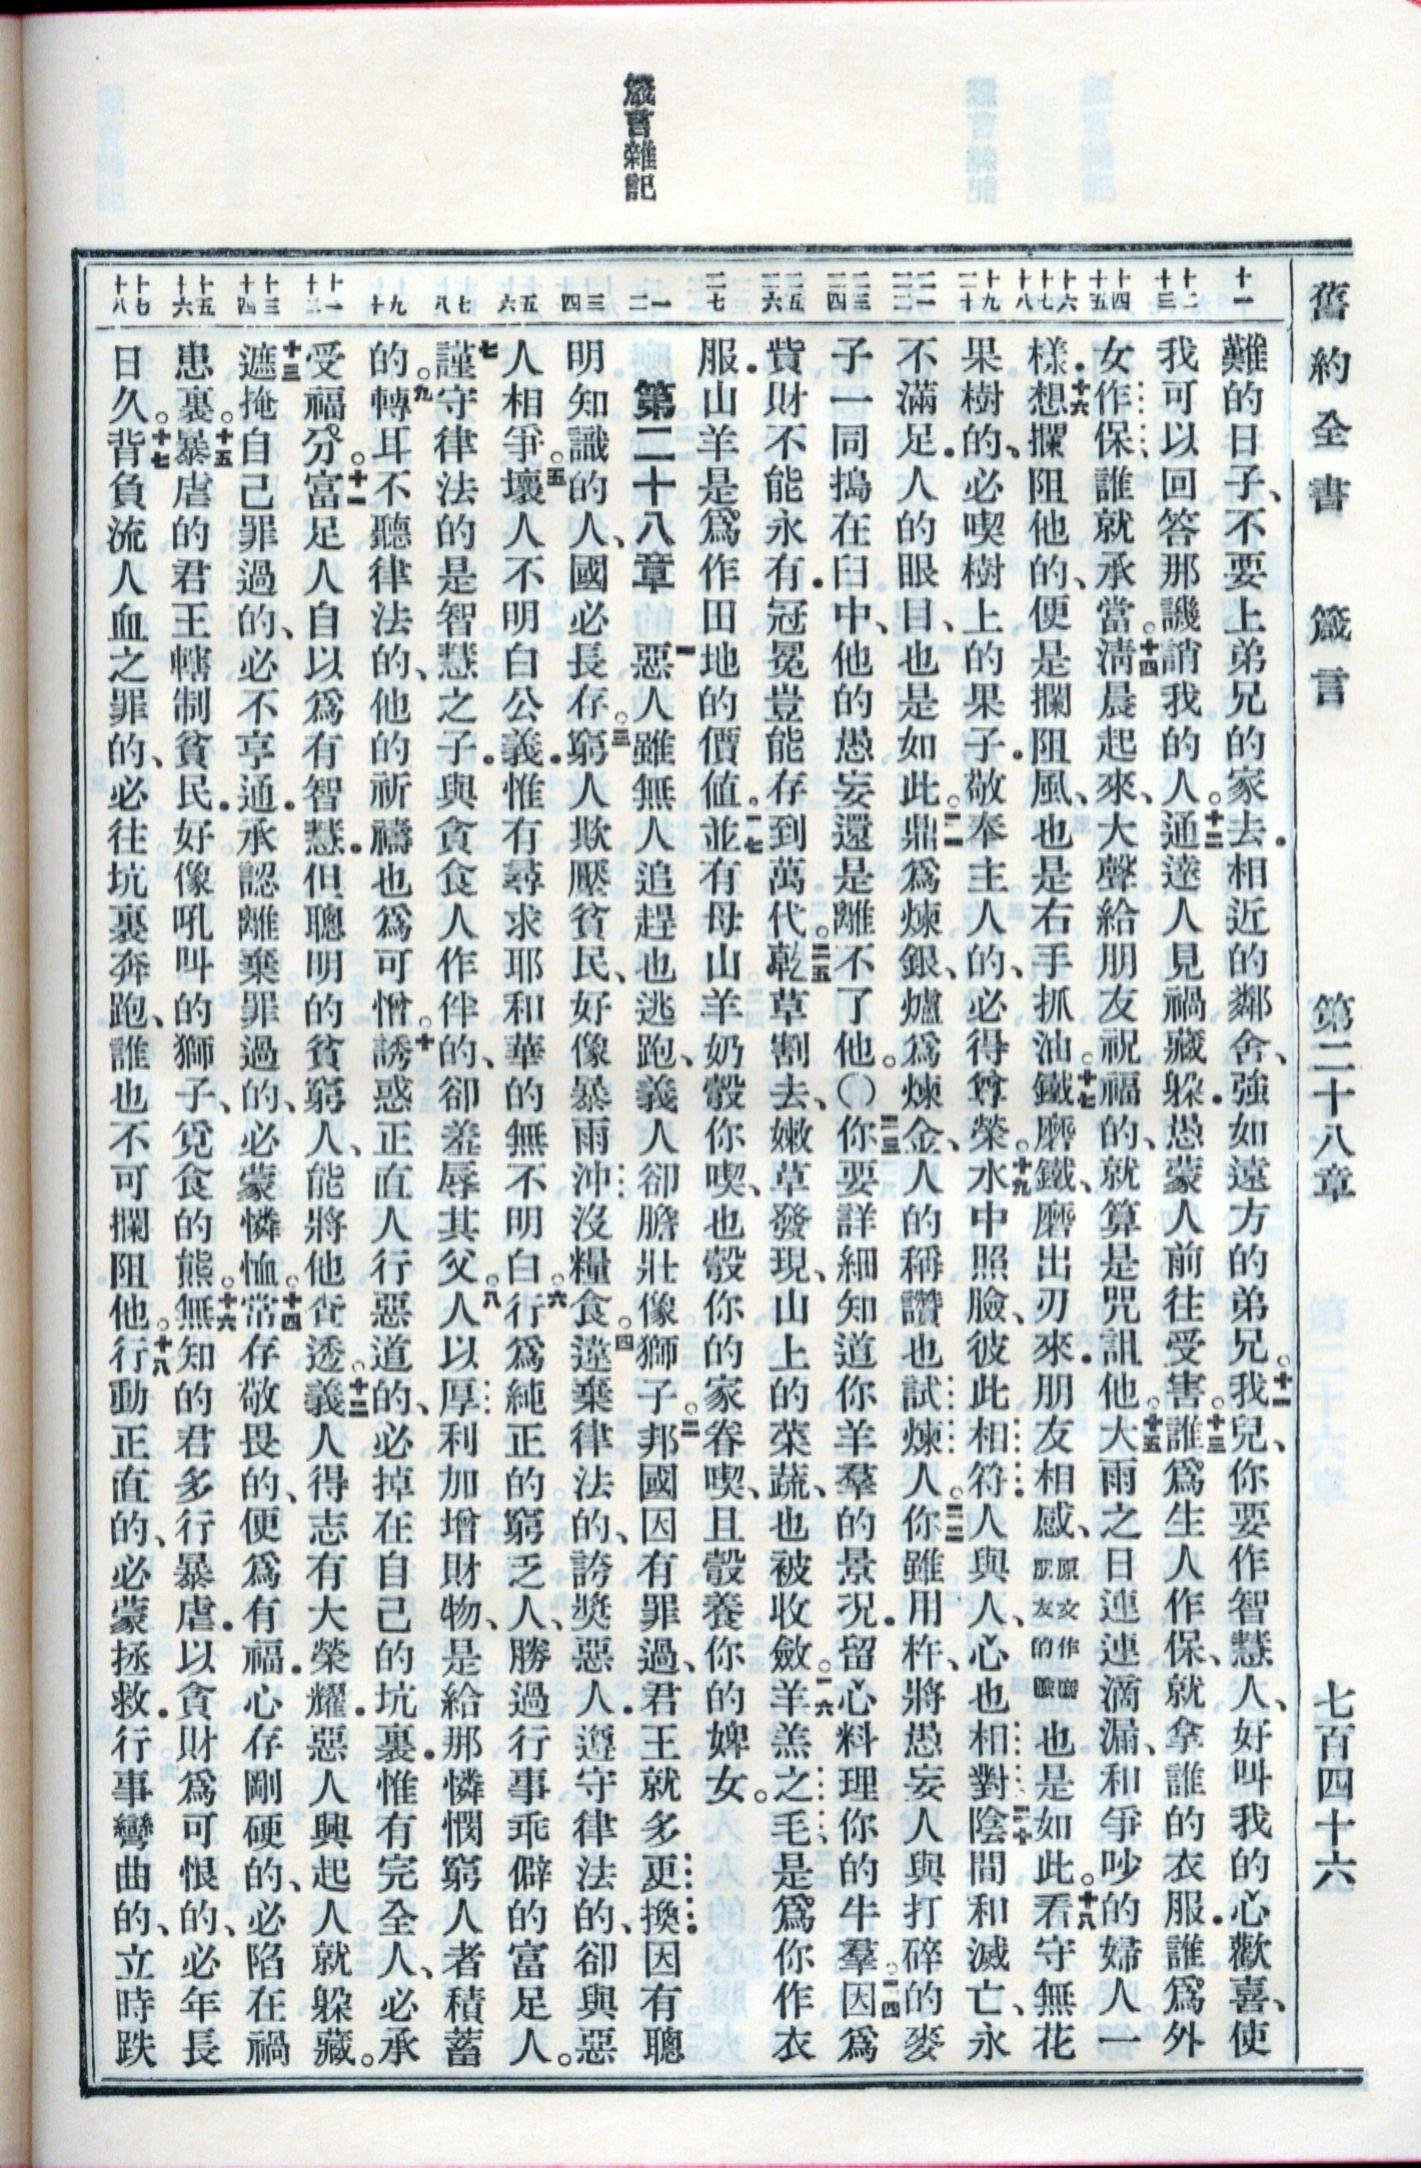 箴言雜記
舊約全書　箴言　第二十八章　七百四十六
十一
十二 十三
十四 十五
十六 十七 十八
十九 二十
二一 二二
二三 二四
二五 二六
二七
一 二
三 四
五 六
七 八
九 十
十一 十二
十三 十四
十五 十六
十七 十八
難的日子、不要上弟兄的家去．相近的鄰舍、強如遠方的弟兄。十一我兒、你要作智慧人、好叫我的心歡喜、使
我可以回答那譏誚我的人。十二通達人見禍藏躲．愚蒙人前往受害。十三誰爲生人作保、就拿誰的衣服．誰爲外
女作保誰就承當。十四淸晨起來、大聲給朋友祝福的、就算是咒詛他。十五大雨之日連連滴漏、和爭吵的婦人一
樣．十六想攔阻他的、便是攔阻風、也是右手抓油。十七鐵磨鐵、磨出刃來．朋友相感、原文作磨朋友的臉也是如此。十八看守無花
果樹的、必喫樹上的果子．敬奉主人的、必得尊榮。十九水中照臉、彼此相符．人與人、心也相對。二十陰間和滅亡、永
不滿足．人的眼目、也是如此。二一鼎爲煉銀、爐爲煉金、人的稱讚也試煉人。二二你雖用杵、將愚妄人與打碎的麥
子一同搗在臼中、他的愚妄還是離不了他。〇二三你要詳細知道你羊羣的景況．留心料理你的牛羣。二四因爲
貲財不能永有．冠冕豈能存到萬代。二五乾草割去、嫩草發現、山上的菜蔬、也被收斂。二六羊羔之毛、是爲你作衣
服．山羊是爲作田地的價值。二七並有母山羊奶彀你喫、也彀你的家眷喫、且彀養你的婢女。
第二十八章　一惡人雖無人追趕也逃跑、義人卻膽壯像獅子。二邦國因有罪過、君王就多更換．因有聰
明知識的人、國必長存。三窮人欺壓貧民、好像暴雨沖沒糧食。四違棄律法的、誇獎惡人．遵守律法的、卻與惡
人相爭。五壞人不明白公義．惟有尋求耶和華的無不明白。六行爲純正的窮乏人、勝過行事乖僻的富足人。
七謹守律法的是智慧之子．與貪食人作伴的、卻羞辱其父。八人以厚利加增財物、是給那憐憫窮人者積蓄
的。九轉耳不聽律法的、他的祈禱也爲可憎。十誘惑正直人行惡道的、必掉在自己的坑裏．惟有完全人、必承
受福分。十一富足人自以爲有智慧．但聰明的貧窮人、能將他查透。十二義人得志有大榮耀．惡人興起人就躲藏。
十三遮掩自己罪過的、必不亨通．承認離棄罪過的、必蒙憐恤。十四常存敬畏的、便爲有福．心存剛硬的、必陷在禍
患裏。十五暴虐的君王轄制貧民．好像吼叫的獅子、覓食的熊。十六無知的君多行暴虐．以貪財爲可恨的、必年長
日久。十七背負流人血之罪的、必往坑裏奔跑、誰也不可攔阻他。十八行動正直的、必蒙拯救．行事彎曲的、立時跌